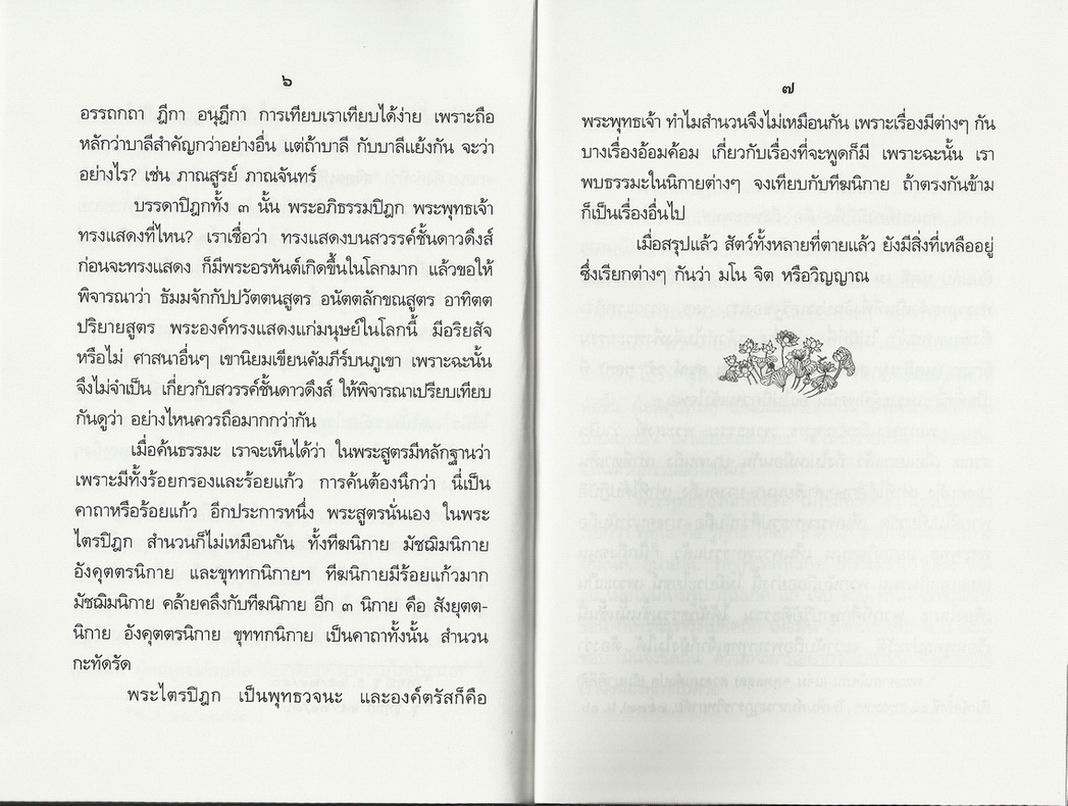 ๖
อรรถกถา ฎีกา อนุฎีกา การเทียบเราเทียบได้ง่าย เพราะถือ
หลักว่าบาลีสำคัญกว่าอย่างอื่น แต่ถ้าบาลี กับบาลีแย้งกัน จะว่า
อย่างไร? เช่น ภาณสูรย์ ภาณจันทร์
บรรดาปิฎกทั้ง ๓ นั้น พระอภิธรรมปิฎก พระพุทธเจ้า
ทรงแสดงที่ไหน? เราเชื่อว่า ทรงแสดงบนสวรรค์ชั้นดาวดึงส์
ก่อนจะทรงแสดง ก็มีพระอรหันต์เกิดขึ้นในโลกมาก แล้วขอให้
พิจารณาว่า ธัมมจักกัปปวัตตนสูตร อนัตตลักขณสูตร อาทิตต
ปริยายสูตร พระองค์ทรงแสดงแก่มนุษย์ในโลกนี้ มีอริยสัจ
หรือไม่ ศาสนาอื่นๆ เขานิยมเขียนคัมภีร์บนภูเขา เพราะฉะนั้น
จึงไม่จำเป็น เกี่ยวกับสวรรค์ชั้นดาวดึงส์ ให้พิจารณาเปรียบเทียบ
กันดูว่า อย่างไหนควรถือมากกว่ากัน
เมื่อค้นธรรมะ เราจะเห็นได้ว่า ในพระสูตรมีหลักฐานว่า
เพราะมีทั้งร้อยกรองและร้อยแก้ว การค้นต้องนึกว่า นี่เป็น
คาถาหรือร้อยแก้ว อีกประการหนึ่ง พระสูตรนั่นเอง ในพระ
ไตรปิฎก สำนวนก็ไม่เหมือนกัน ทั้งทีฆนิกาย มัชฌิมนิกาย
อังคุตตรนิกาย และขุททกนิกายฯ ทีฆนิกายมีร้อยแก้วมาก
มัชฌิมนิกาย คล้ายคลึงกับทีฆนิกาย อีก ๓ นิกาย คือ สังยุตต-
นิกาย อังคุตตรนิกาย ขุททกนิกาย เป็นคาถาทั้งนั้น สำนวน
กะทัดรัด
พระไตรปิฎก เป็นพุทธวจนะ และองค์ตรัสก็คือ
๗
พระพุทธเจ้า ทำไมสำนวนจึงไม่เหมือนกัน เพราะเรื่องมีต่างๆ กัน
บางเรื่องอ้อมค้อม เกี่ยวกับเรื่องที่จะพูดก็มี เพราะฉะนั้น เรา
พบธรรมะในนิกายต่างๆ จงเทียบกับทีฆนิกาย ถ้าตรงกันข้าม
ก็เป็นเรื่องอื่นไป
เมื่อสรุปแล้ว สัตว์ทั้งหลายที่ตายแล้ว ยังมีสิ่งที่เหลืออยู่
ซึ่งเรียกต่างๆ กันว่า มโน จิต หรือวิญญาณ